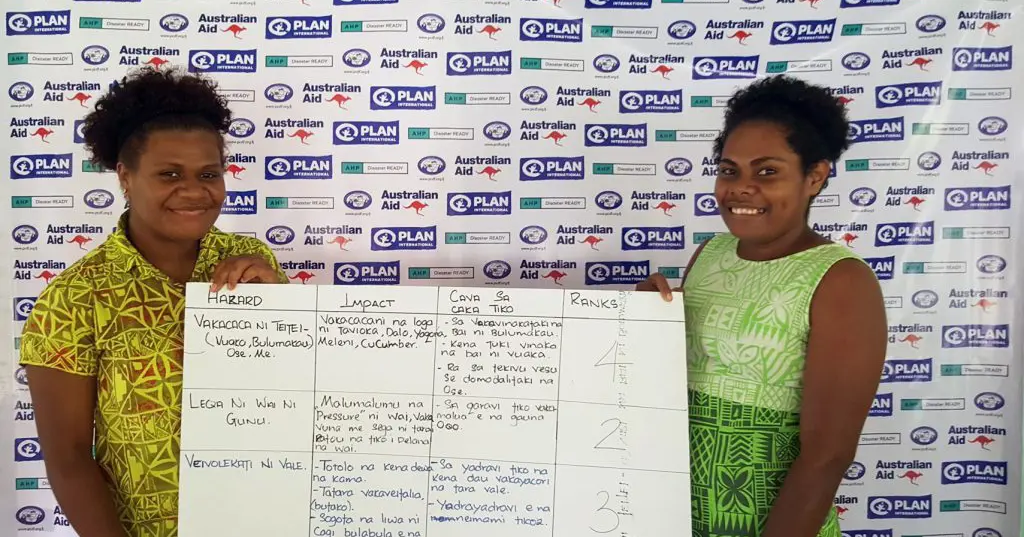 PLAN
INTERNATIONAL
Australian
Aid
AHP Disaster READY
HAZARD
IMPACT
CAVA SA
CAKA TIKO
RANKS
VAKACACA NI TEITEI-
(VUAKA, BULUMAKAU)
OSE, ME.
VAKACACANI NA LOGA
NI TAVIOKA, DALO, YAQONA,
MELENI, CUCUMBER.
- SA VAKAVINAKATAKI NA
BAI NI BULUMAKAU.
- KENA TUKI VINAKA
NA BAI NI VUAKA.
- RA SA TEKIVU VESU
SE DOMODALITAKI NA
OSE.
4
LEQA NI WAI NI
GUNU.
"MALUMALUMU NA
PRESSURE" NI WAI, VAKA
VUNA ME SEGA NI TARA
RATOU NA TIKO I DELANA
NA WAI.
- SA QARAVI TIKO VAKA
MALUA E NA GAUNA
OQO.
2
VEIVOLEKATI NI VALE.
- TOTOLO NA KENA DEWA
NA KAMA.
- TATARA VAKAVEITALIA,
(BUTAKO).
- SOGOTA NA LIWA NI
CAGI BULABULA E NA
- SA YADRAVI TIKO NA
KENA DAU VAKAYACORI
NA TARA VALE.
- YADRAYADRAVI E NA
NEIMAMI TIKOR.
3